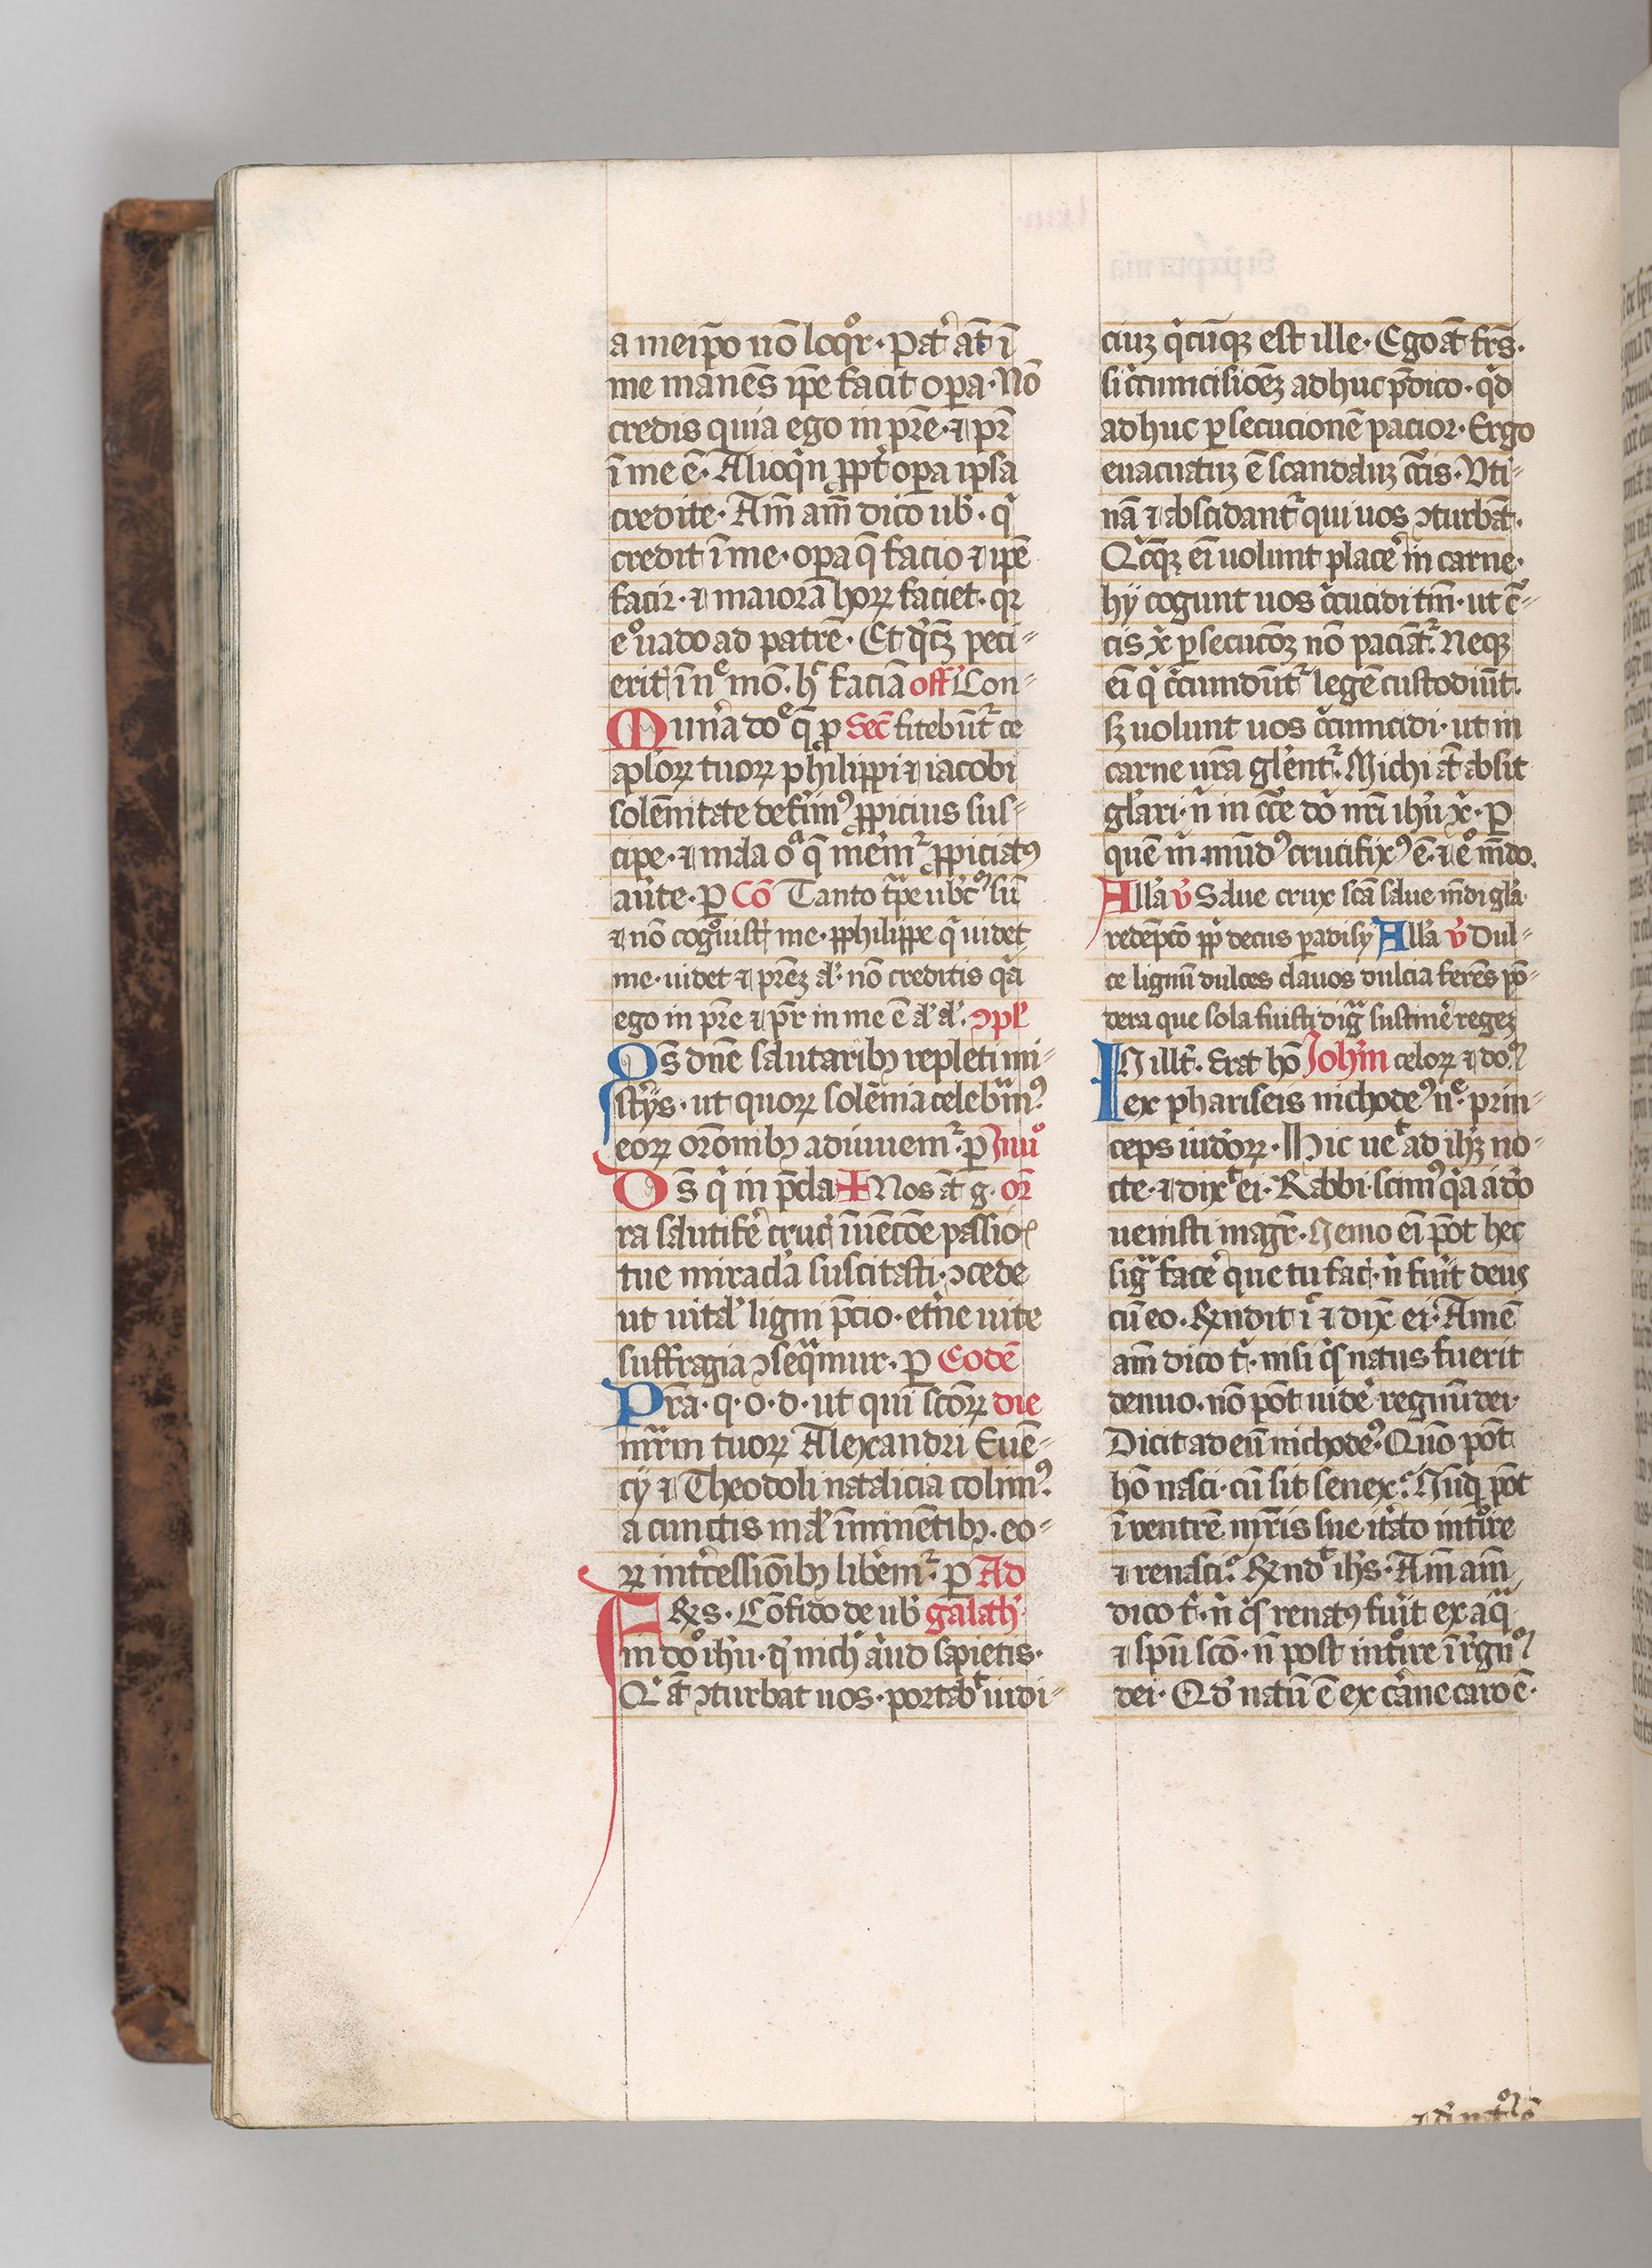 a meip̄o nō loq̊r · Pat̉ at̄ ī
me manēs ip̄e facit oꝑa · Nō
credis quia ego in pr̄e · ⁊ pr̄
ī me ē · Alioqͥn ꝓpt̉ oꝑa ipsa
credite · Am̄ am̄ dico uob̉ · qͥ
credit ī me · oꝑa q̄ facio ⁊ ip̄e
facit · ⁊ maiora hoꝝ faciet · qꝛ
eͦ uado ad patrē · Et qͦcūqꝫ peci⸗
erit̉ ī nͤ mō · hͨ faciā off̄ Con⸗
Mun̉a dōe q̄ ꝓ Sec̄ fitebūt̉ ce
apl̓oꝝ tuoꝝ philippi ⁊ iacobi
solēnitate defeim᷒ ꝓpicius sus⸗
cipe · ⁊ mala oͣ q̄ mem̉ ꝓpiciatꝰ
au̓te · ꝑ Cō Tanto tp̄e uob̉cͦ sū
⁊ nō cogͦuist̉ me · philippe qͥ uidet
me · uidet ⁊ prēꝫ al̓l̓ · nō creditis qͣ
ego in pr̄e ⁊ pr̄ in me ē al̓l̓ al̓l̓ · ꝯpl̓
Qs̄ dn̄e salutaribꝫ repleti mi⸗
st̉ijs · ut quoꝝ solēnia celebͣmꝰ
eoꝝ orōnibꝫ adiuuem̉ · ꝑ Inuͦ
Ds̄ qͥ in p̄cla ✠ Nos āt g · or̄
ra salutife̓ cruc̉ īuēcōe passiōꝭ
tue miracl̓a suscitasti · ꝯcede
ut uital̓ ligni p̄cio · et̓ne uite
suffragia ꝯseqͣmur · ꝑ Eodē
Pr̄a · q · o · d · ut qui scōꝝ die
mr̄m tuoꝝ Alexandri Euē⸗
cij ⁊ Theodoli natalicia colimꝰ
a cunctis mal̓ īminētibꝫ · eo⸗
ꝝ int̓cessiōibꝫ libem̉ · ꝑ Ad
Fr̄s · Cōfido de uob̉ galath̓
in dōo ih̄u · qͩ nich̓ aliud sapietis ·
Qͥ āt ꝯturbat uos · portabͭ iudi⸗
ciuꝫ qͥcūqꝫ est ille · Ego āt fr̄s ·
si c̓cumcisioēꝫ adhuc p̄dico · qͥd
adhuc ꝑsecucionē pacior · Ergo
euacuatuꝫ ē scandaluꝫ c̓cis · Vti⸗
nā ⁊ abscidant̉ qui uos ꝯturbāt ·
Qͥcūqꝫ ei̅ uolunt place̓ in carne ·
hij cogunt uos c̓cūcidi tm̄ · ut c̓⸗
cis x̄ ꝑsecucōꝫ nō paciāt̉ · Neqꝫ
ei̅ qͥ c̓cumdūt̉ legē custodiūt ·
sꝫ uolunt uos c̓cumcidi · ut in
carne ur̄a gl̓ent̉ · Michi āt absit
gl̓ari · n̄ in c̓ce dō nr̄i ih̄u x̄ · ꝑ
quē m̄ mūdꝰ crucifixꝰ ē · ⁊ eͦ mūdo ·
All̓a v̓ Salue crux scā salue mūdi gl̓a
redēpcō ꝓp̉ decus ꝑadisij All̓a v̓ Dul⸗
ce lignū dulces clauos dulcia ferēs pō⸗
dera que sola fuisti digͣ sustine̓ regeꝫ
In illͭ · Erat hō Joh̓m celoꝝ ⁊ dō
ex phariseis nichodeꝰ nͤ · prin⸗
ceps iudōꝝ · Hic ueͭ ad ih̄ꝫ no⸗
cte · ⁊ dixͭ ei · Rabbi · scimꝰ qͣ a dō
uenisti magr̄ · Nemo ei̅ pōt hec
sigͣ face̓ que tu fac̉ · n̄ fu̓it deus
cū eo · R̄ndit iͨ ⁊ dix̄ ei · Amē
am̄ dico tͥ · nisi qͥs natus fuerit
denuo · nō pōt uide̓ regnū dei ·
Dicit ad eū nichodeꝰ · Quō pōt
hō nasci · cū sit senex · Nūqͥ pōt
ī ventrē mr̄is sue it̓ato int̓ire
⁊ renasci · R̄ndͭ ih̄s · Am̄ am̄
dico tͥ · n̄ qͥs renatꝰ fu̓it ex aqͣ
⁊ spū scō · n̄ potst int̓ire ī r̓gnū
dei · Qd̓ natū ē ex carne caro ē ·